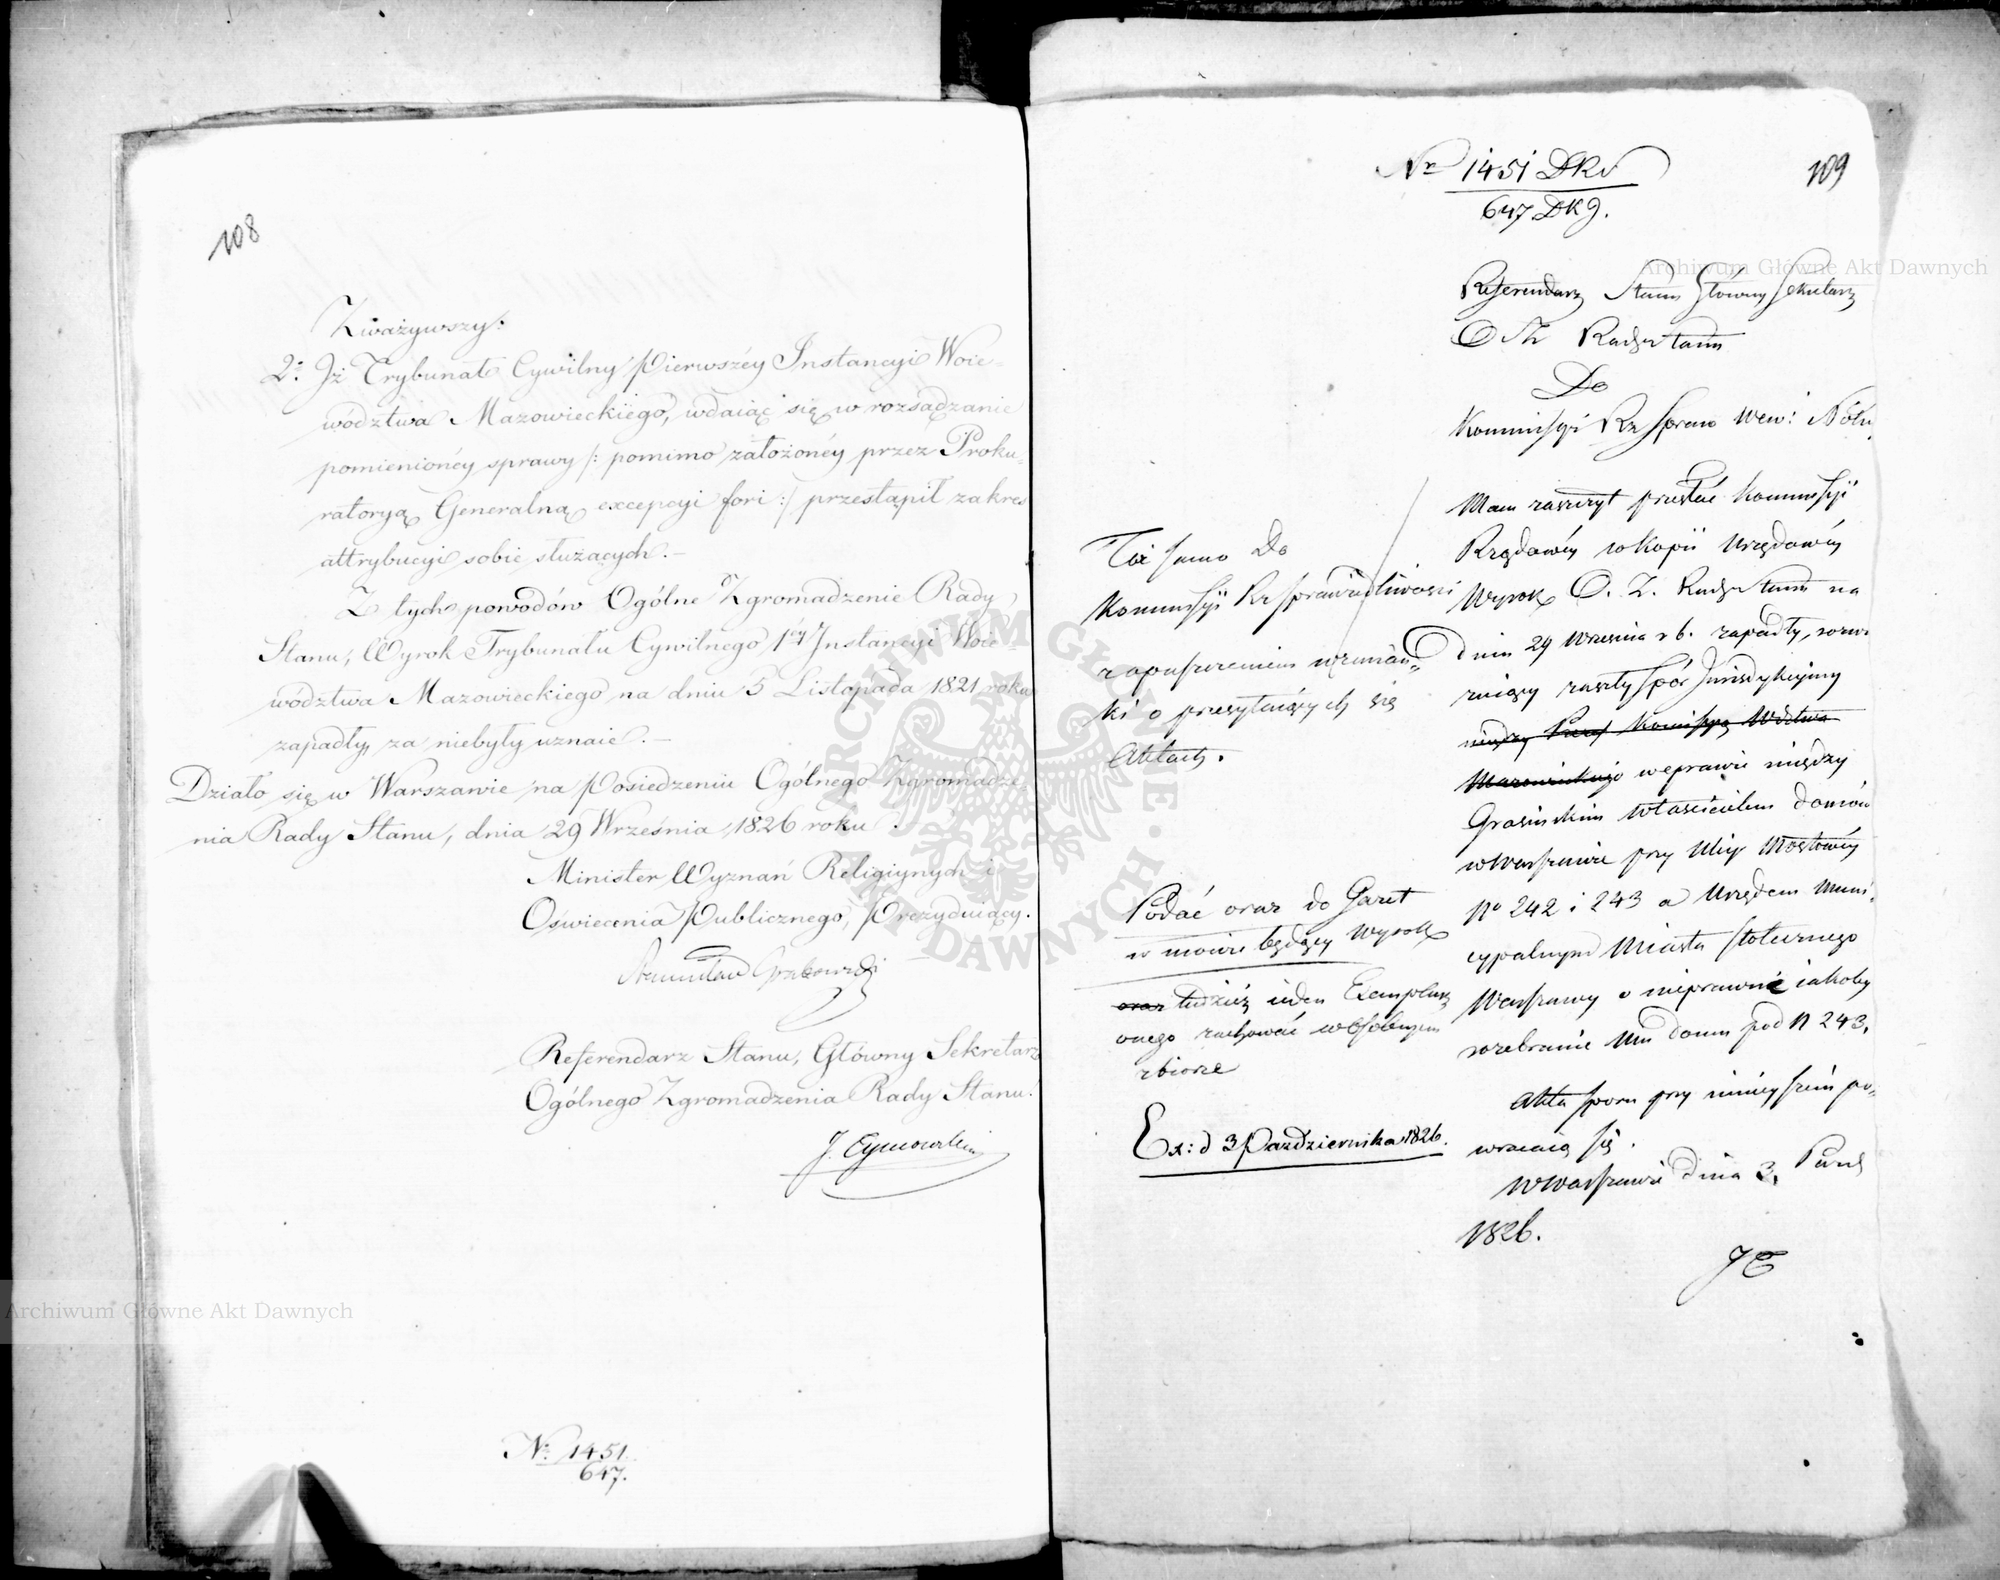 108
Zważywszy:
2. Jż Trybunał Cywilny pierwszéy Instancyi Woie-
wództwa Mazowieckiego, wdaiąc się w rozsądzanie
pomienionéy sprawy /: pomimo założonéy przez Proku-
ratoryą Generalną excepcyi fori :/ przestąpił zakres
attrybucyi sobie służących. —
Z tych powodów Ogólne Zgromadzenie Rady
Stanu, Wyrok Trybunału Cywilnego 1éy Instancyi Woie-
wództwa Mazowieckiego na dniu 5 Listopada 1821 roku
zapadły, za niebyły uznaie. —
Działo się w Warszawie na Posiedzeniu Ogólnego Zgromadze-
nia Rady Stanu, dnia 29 Września 1826 roku.
Minister Wyznań Religiynych i
Oświecenia Publicznego, Prezyduiący.
Stanisław Grabowski
Referendarz Stanu, Główny Sekretarz
Ogólnego Zgromadzenia Rady Stanu.
J. Tymowski
No. 1451.
647.
109
Nr 1451 DRS
647 DKG.
Referendarz Stanu Główny Sekretarz
O Z Rady Stanu
Do
Kommissyi Rz Spraw Wew: i Policyi
Mam zaszczyt przesłać Kommissyi
Rządowéy w kopii Urzędowéy
Wyrok O. Z. Rady Stanu na
dniu 29 Września r b. zapadły, rozwi-
zuiący zaszły spór Jurisdykcyiny
między Kommissyą Wdztwa
Mazowieckiego w sprawie między
Grasińskim właścicielem domów
w Warszawie przy Ulicy Mostowéy
No 242 i 243 a Urzędem Muni-
cypalnym Miasta Stołecznego
Warszawy o nieprawne iakoby
rozebranie Mu domu pod N 243.
Akta sporu przy ninieyszém po-
wracaią się.
w Warszawie dnia 3. Paźd
1826.
JT
Toż samo do
Kommissyi Rz Sprawiedliwości
z opuszczeniem wzmian-
ki o przesyłaiących się
Aktach.
Podać oraz do Gazet
w mowie będący Wyrok
oraz tudzież ieden Exemplarz
onego zachować w osobnym
zbiorze
Ex: d 3 Października 1826.
Archiwum Główne Akt Dawnych
Archiwum Główne Akt Dawnych
ARCHIWUM GŁÓWNE AKT DAWNYCH